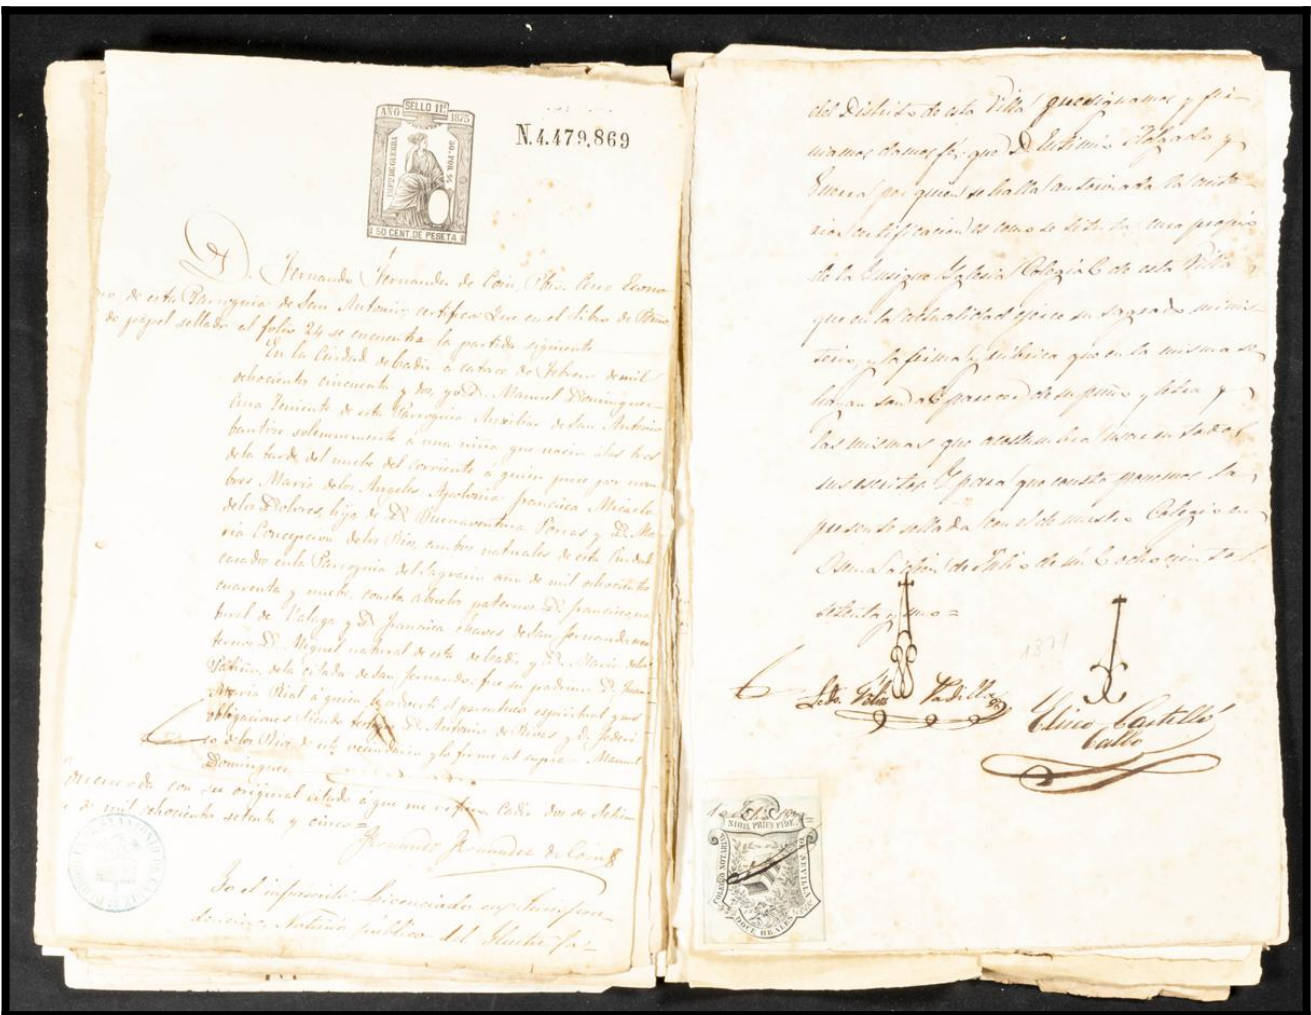 SELLO 11º
AÑO 1875
IMPTO DE GUERRA
50 CENT DE PESETA
N.4.479,869
D. Fernando Fernandez de Coin, Pbro. Cura Econo
mo de esta Parroquia de San Antonio certifico: Que en el libro de
de papel sellado al folio 24 se encuentra la partida siguiente
En la Ciudad de Cadiz a catorce de Febrero de mil
ochocientos cincuenta y dos, yo D. Manuel Dominguez
Cura Teniente de esta Parroquia Auxiliar de San Antonio
bautize solemnemente á una niña que nació á las tres
de la tarde del nuebe del corriente á quien puse por nom
bres Maria de los Angeles Apolonia Francisca Micaela
de los Dolores, hija de Dn Buenaventura Porras y Dª Ma
ria Concepcion de los Rios, ambos naturales de esta Ciudad
casados en la Parroquia del Sagrario año de mil ochocientos
cuarenta y nuebe. consta abuelos paternos Dn Francisco, na
tural de Malaga y Dª Francisca Chaves de San Fernando: ma
ternos Dn Miguel natural de esta de Cadiz y Dª Maria de la
de la citada de San Fernando: fue su padrino Dn Juan
Maria Rial á quien le adverti el parentesco espiritual y sus
obligaciones siendo testigos Dn Antonio de Rivas y Dn Federi
co de los Rios de esta vecindario y lo firmé ut supra = Manuel
Dominguez
Concuerda con su original citado á que me refiero. Cadiz dos de
de mil ochocientos setenta y cinco =
Fernando Fernandez de Coin
Yo el infrascrito Licenciado en Jurispru-
dencia, Notario público del Ilustre Co-
del Distrito de esta Villa que signamos y fir-
mamos damos fé: que D. Antonio Holgado y
Guerra por quien se halla autorizada la ante-
rior certificacion es como se titula cura propio
de la Insigne Iglesia Colegial de esta Villa,
que en la actualidad ejerce su sagrado minis-
terio, y la firma y rúbrica que en la misma se
hayan son al parecer de su puño y letra y
las mismas que acostumbra usar en todos
sus escritos. Y para que conste ponemos la
presente sellada con el de nuestro Colegio en
Osuna a de Julio de mil ochocientos
setenta y uno =
1871
Ldo. Vadillo
Castelló
Calvo
NIHIL PRIUS FIDE
COLEGIO NOTARIAL
DE SEVILLA
DOCE REALES